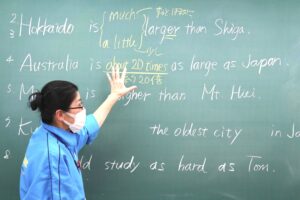 much
2 Hokkaido is larger than Shiga.
a little
4 Australia is about 20 times as large as Japan.
約20倍
5 M is higher than Mt.
the oldest city in Ja
8 ld study as hard as Tom.